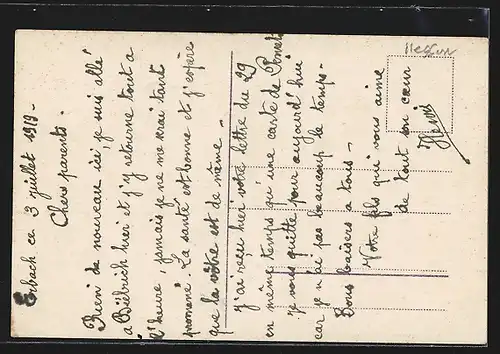 Erbach ce 3 juillet 1919 -
Chers parents -
Rien de nouveau ici, je suis allé
a Biebrich hier et j'y retourne tout a
l'heure, jamais je ne me vrai tant
promené La santé est bonne et j'espère
que la vôtre est de même -
J'ai reçu hier votre lettre du 29
en même temps qu'une carte de
je vous quitte pour aujourd'hui
car je n'ai pas beaucoup le temps -
Bons baisers a tous -
Votre fils qui vous aime
de tout son cœur
Henri